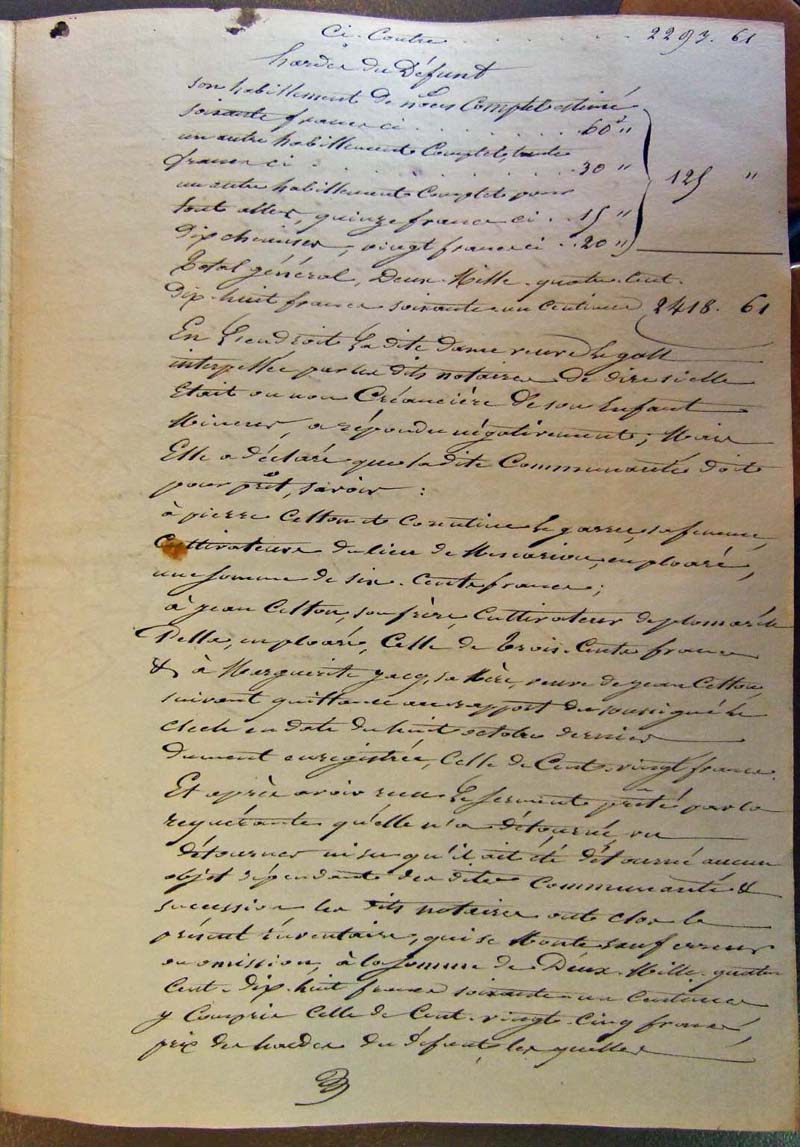 Ci-Contre . . . . . . . . 2293. 61
hardes du Défunt
son habillement de nôces Complet estimé
soixante francs ci . . . . . . . 60 f "
un autre habillement Complet, trente
francs ci . . . . . . . . . . 30 " 125 "
un autre habillement Complet pour
tout aller, quinze francs ci . . 15 "
dix chemises, vingt francs ci . . 20 "
Total général, Deux Mille quatre cent
dix huit francs soixante un centimes 2418. 61
En l'endroit la dite dame veuve Le gall
interpellée par les dits notaires de dire si elle
Etait ou non Créancière de son Enfant
Mineur, a répondu négativement; Mais
Elle a déclaré que la dite Communauté doit
pour prêt, savoir :
à pierre Celton et Corentine Le garrec, sa femme,
Cultivateurs du lieu de en ploaré,
une somme de six-Cents francs;
à jean Celton, son frère, Cultivateur de
en ploaré, Celle de Trois-Cents francs
& à Marguerite jacq, sa Mère, veuve de jean Celton,
suivant quittance au rapport du soussigné Le
en date du huit octobre dernier
dument enregistrée, Celle de Cent-vingt francs.
Et après avoir reçu le serment prêté par la
requérante qu'elle n'a détourné vu
détourner ni su qu'il ait été détourné aucun
objet dépendant des dites Communauté &
succession les dits notaires ont clos le
présent inventaire, qui se Monte sauf erreur
ou omission, à la somme de Deux-Mille-quatre
Cent-dix-huit francs soixante-un Centimes
y Compris Celle de Cent-vingt-Cinq francs,
prix des hardes du défunt, les quelles